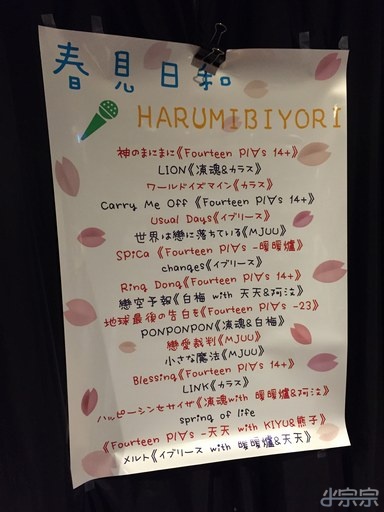 春見日和
HARUMIBIYORI
神のまにまに《Fourteen Pl∀s 14+》
LION《凛魂&カラス》
ワールドイズマイン《カラス》
Carry Me Off 《Fourteen Pl∀s 14+》
Usual Days《イブリース》
世界は戀に落ちている《MJUU》
SPiCa 《Fourteen Pl∀s -暖暖爐》
changes《イブリース》
Ring Dong《Fourteen Pl∀s 14+》
戀空予報《白梅 with 天天&阿泣》
地球最後の告白を《Fourteen Pl∀s -23》
PONPONPON《凛魂&白梅》
戀愛裁判《MJUU》
小さな魔法《MJUU》
Blessing《Fourteen Pl∀s 14+》
LINK《カラス》
ハッピーシンセサイザ《凛魂with 暖暖爐&阿泣》
spring of life
《Fourteen Pl∀s -天天 with KIYU&熊子》
メルト《イブリース with 暖暖爐&天天》
小宗宗